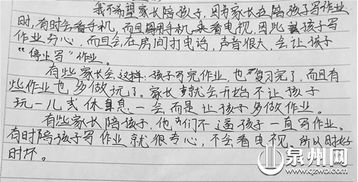 我不希望家长陪孩子，因为家长在陪孩子写作业
时，有时会看手机，而且用手机来看电视，因此孩子写
作业分心，而且会在房间打电话，声音很大会让孩子
"停止写"作业。
有些家长会这样：孩子写完作业，也"复习完了，而且有
些作业也多做完了。家长就会开始不让孩子
玩一儿或休息息一会而是让孩子多做作业。
有些家长陪孩子，他"们不逼孩子一直写作业。
有时陪孩子写作业就很专心，不会看电视，所以时好
时坏。
泉州网
www.qzwb.com